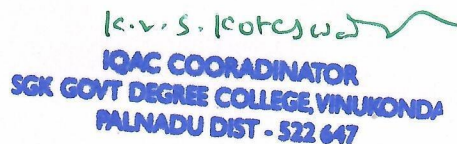 K.v.s. Koteswar
IQAC COORADINATOR
SGK GOVT DEGREE COLLEGE, VINUKONDA
PALNADU DIST - 522 647